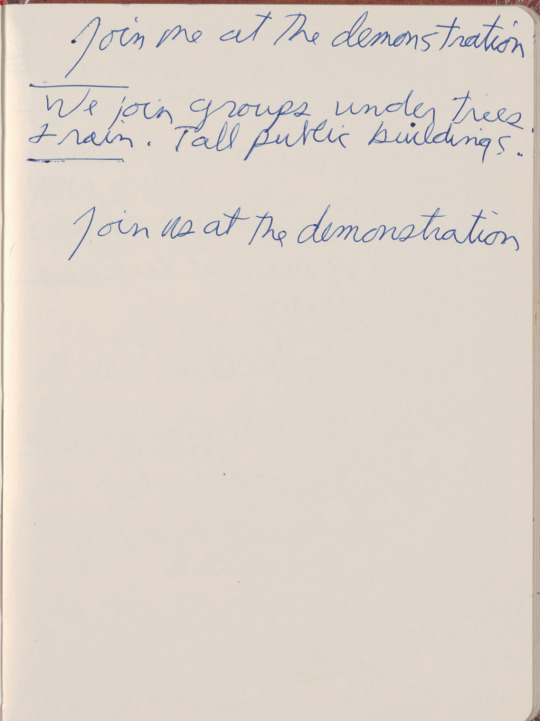 Join me at the demonstration
We join groups under trees.
& rain. Tall public buildings.
Join us at the demonstration